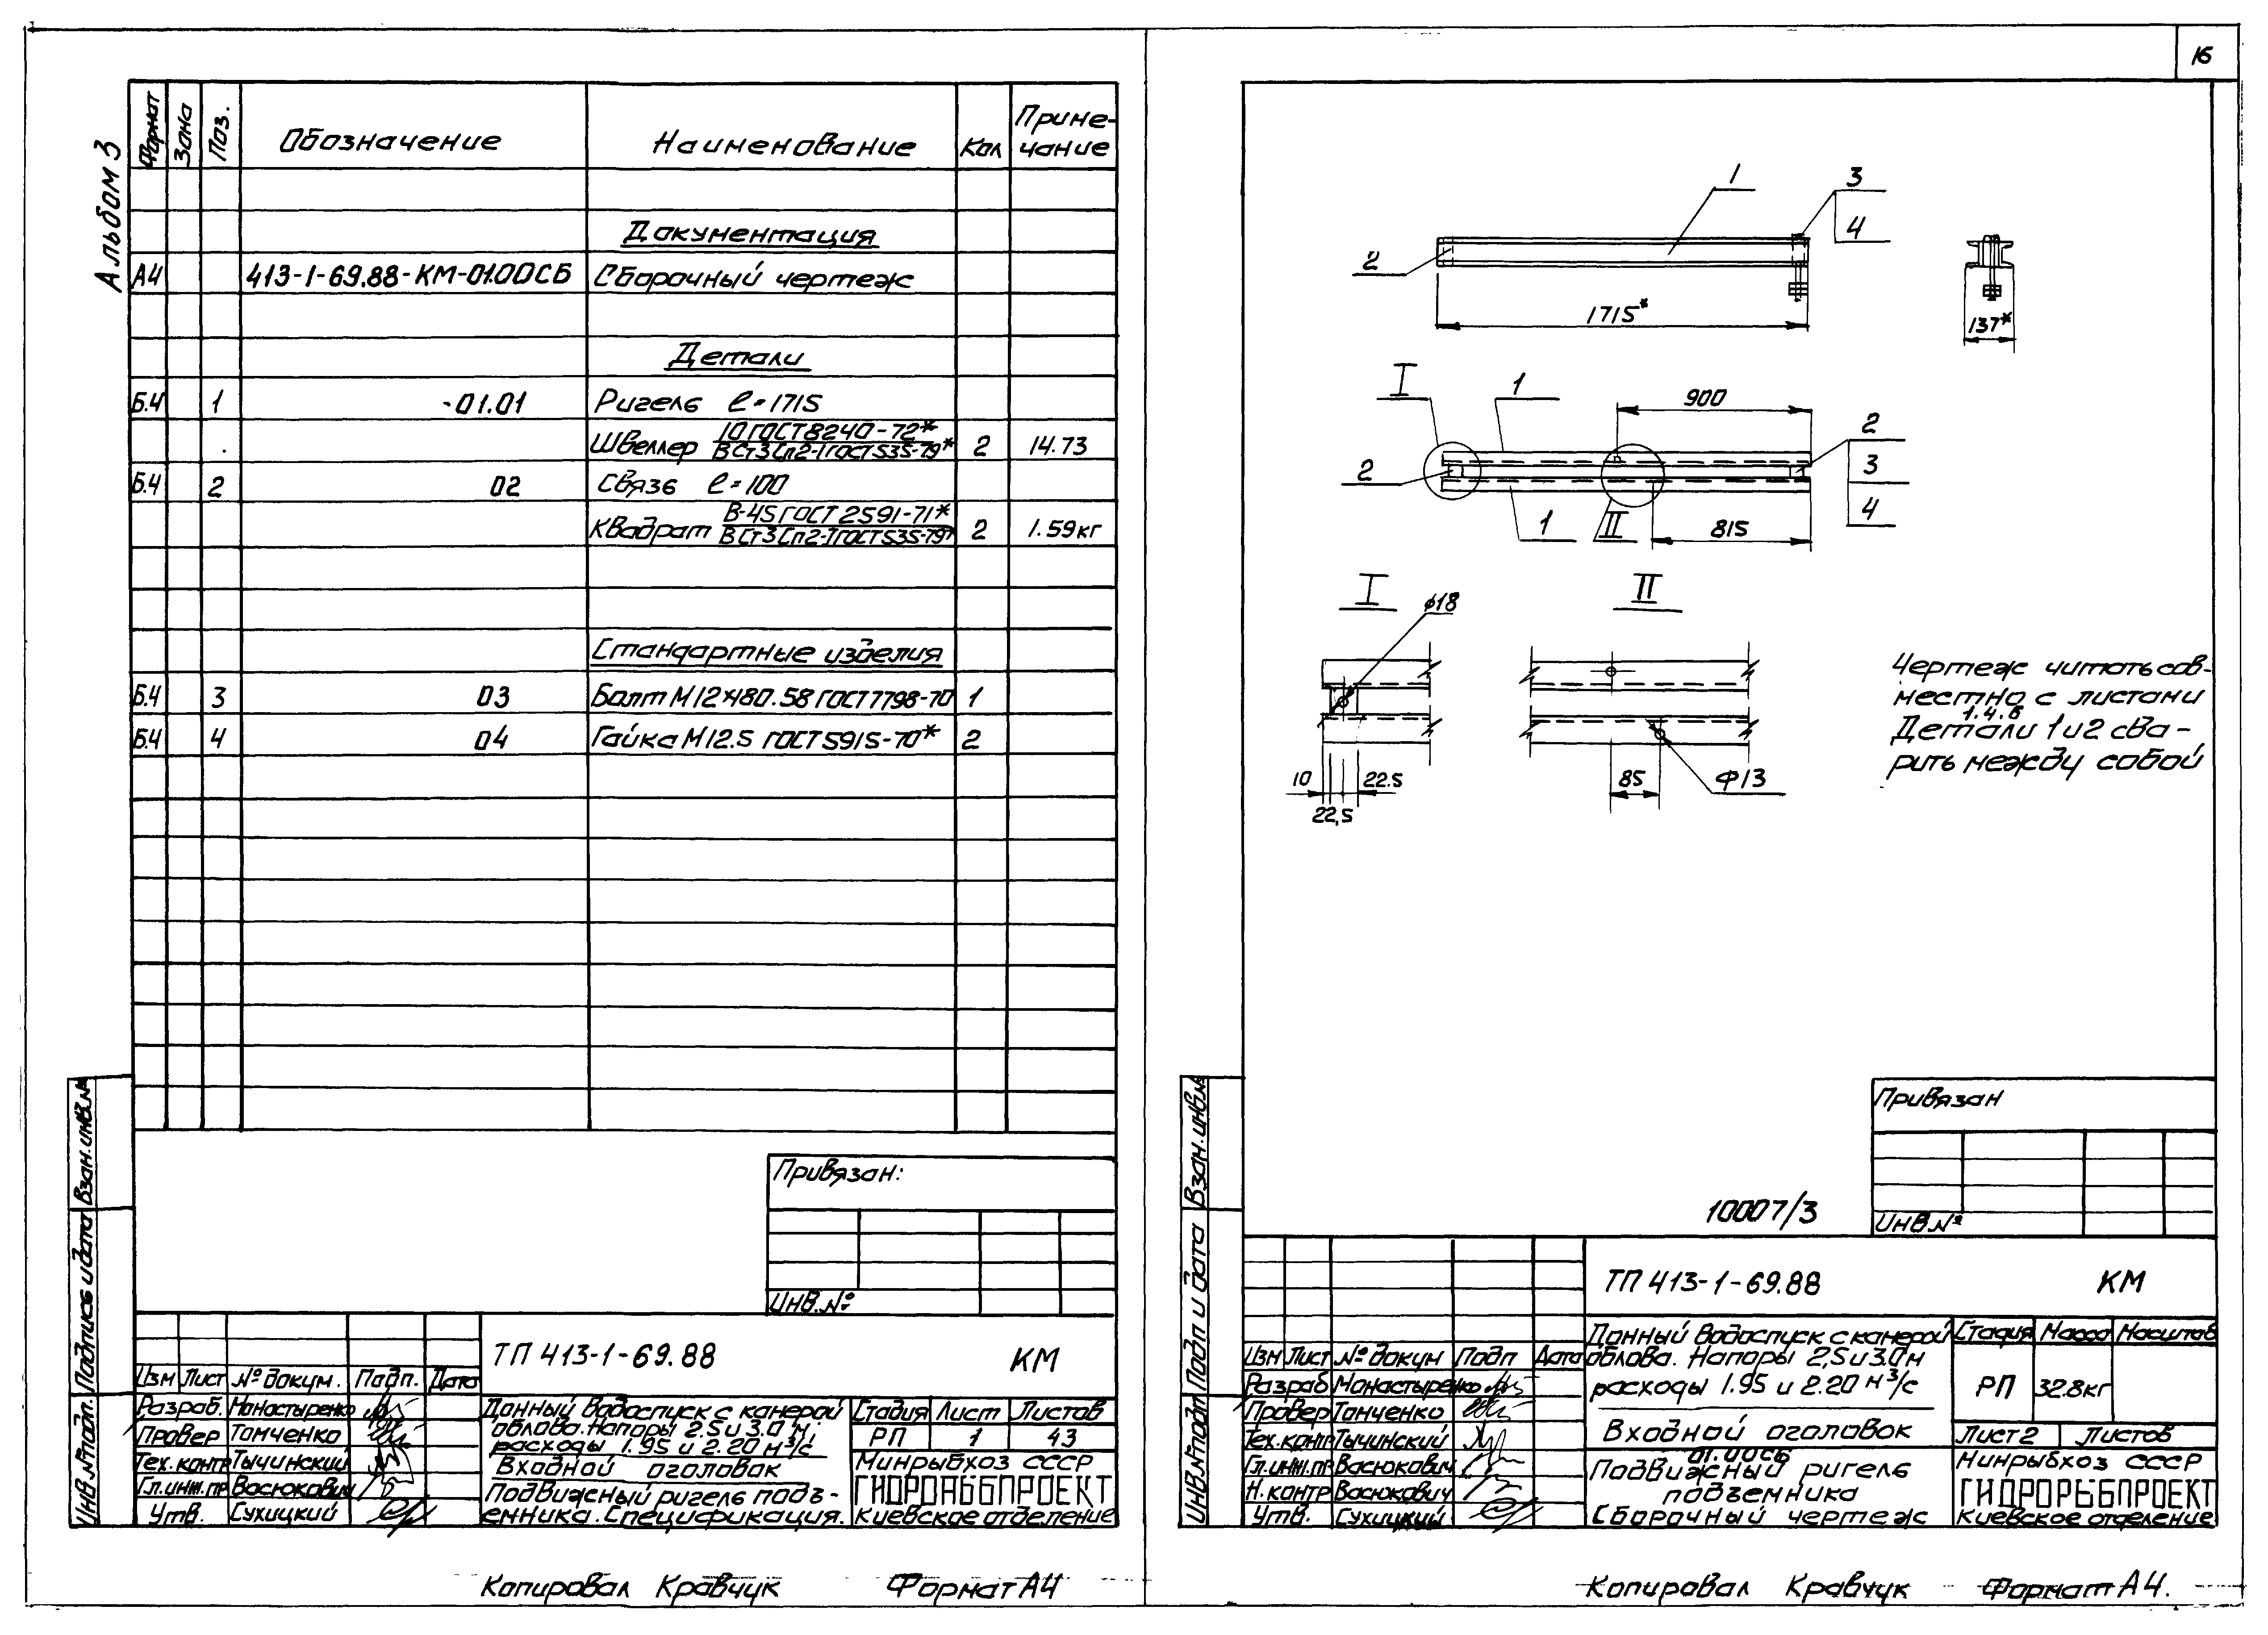 16
Альбом 3
Формат Зона Поз. Обозначение Наименование Кол Приме-чание
Документация
А4 413-1-69.88-КМ-01.00СБ Сборочный чертеж
Детали
Б.4 1 -01.01 Ригель ℓ=1715
Швеллер 10 ГОСТ 8240-72* / ВСт3Сп2-I ГОСТ 535-79* 2 14.73
Б.4 2 02 Связь ℓ=100
Квадрат В-45 ГОСТ 2591-71* / ВСт3Сп2-I ГОСТ 535-79* 2 1.59кг
Стандартные изделия
Б.4 3 03 Болт М12×180.58 ГОСТ 7798-70 1
Б.4 4 04 Гайка М12.5 ГОСТ 5915-70* 2
Привязан:
Инв.№
ТП 413-1-69.88 КМ
Изм Лист № докум. Подп. Дата
Разраб. Монастыренко
Провер Томченко
Тех.контр Тычинский
Гл.инж.пр Васюкович
Утв. Сухицкий
Донный водоспуск с камерой
облова. Напоры 2.5 и 3.0 м.
расходы 1.95 и 2.20 м³/с
Входной оголовок
Подвижный ригель подъ-
емника. Спецификация.
Стадия Лист Листов
РП 1 43
Минрыбхоз СССР
ГИДРОРЫБПРОЕКТ
Киевское отделение
Инв.№ подп. Подпись и дата Взам.инв.№
Копировал Кравчук Формат А4
1
3
4
2
1715*
137*
I
1
900
2
3
4
2
1
II
815
I
ø18
II
10
22.5
22,5
85
Ф13
Чертеж читать сов-
местно с листами
1.4.6
Детали 1 и 2 сва-
рить между собой
Привязан
Инв.№
10007/3
ТП 413-1-69.88 КМ
Изм Лист № докум Подп Дата
Разраб Монастыренко
Провер Томченко
Тех.контр Тычинский
Гл.инж.пр Васюкович
Н.контр Васюкович
Утв. Сухицкий
Донный водоспуск с камерой
облова. Напоры 2,5 и 3.0 м
расходы 1.95 и 2.20 м³/с
Входной оголовок
01.00СБ
Подвижный ригель
подъемника
Сборочный чертеж
Стадия Масса Масштаб
РП 32.8кг
Лист 2 Листов
Минрыбхоз СССР
ГИДРОРЫБПРОЕКТ
Киевское отделение
Инв.№ подп Подп и дата Взам.инв.№
Копировал Кравчук Формат А4.